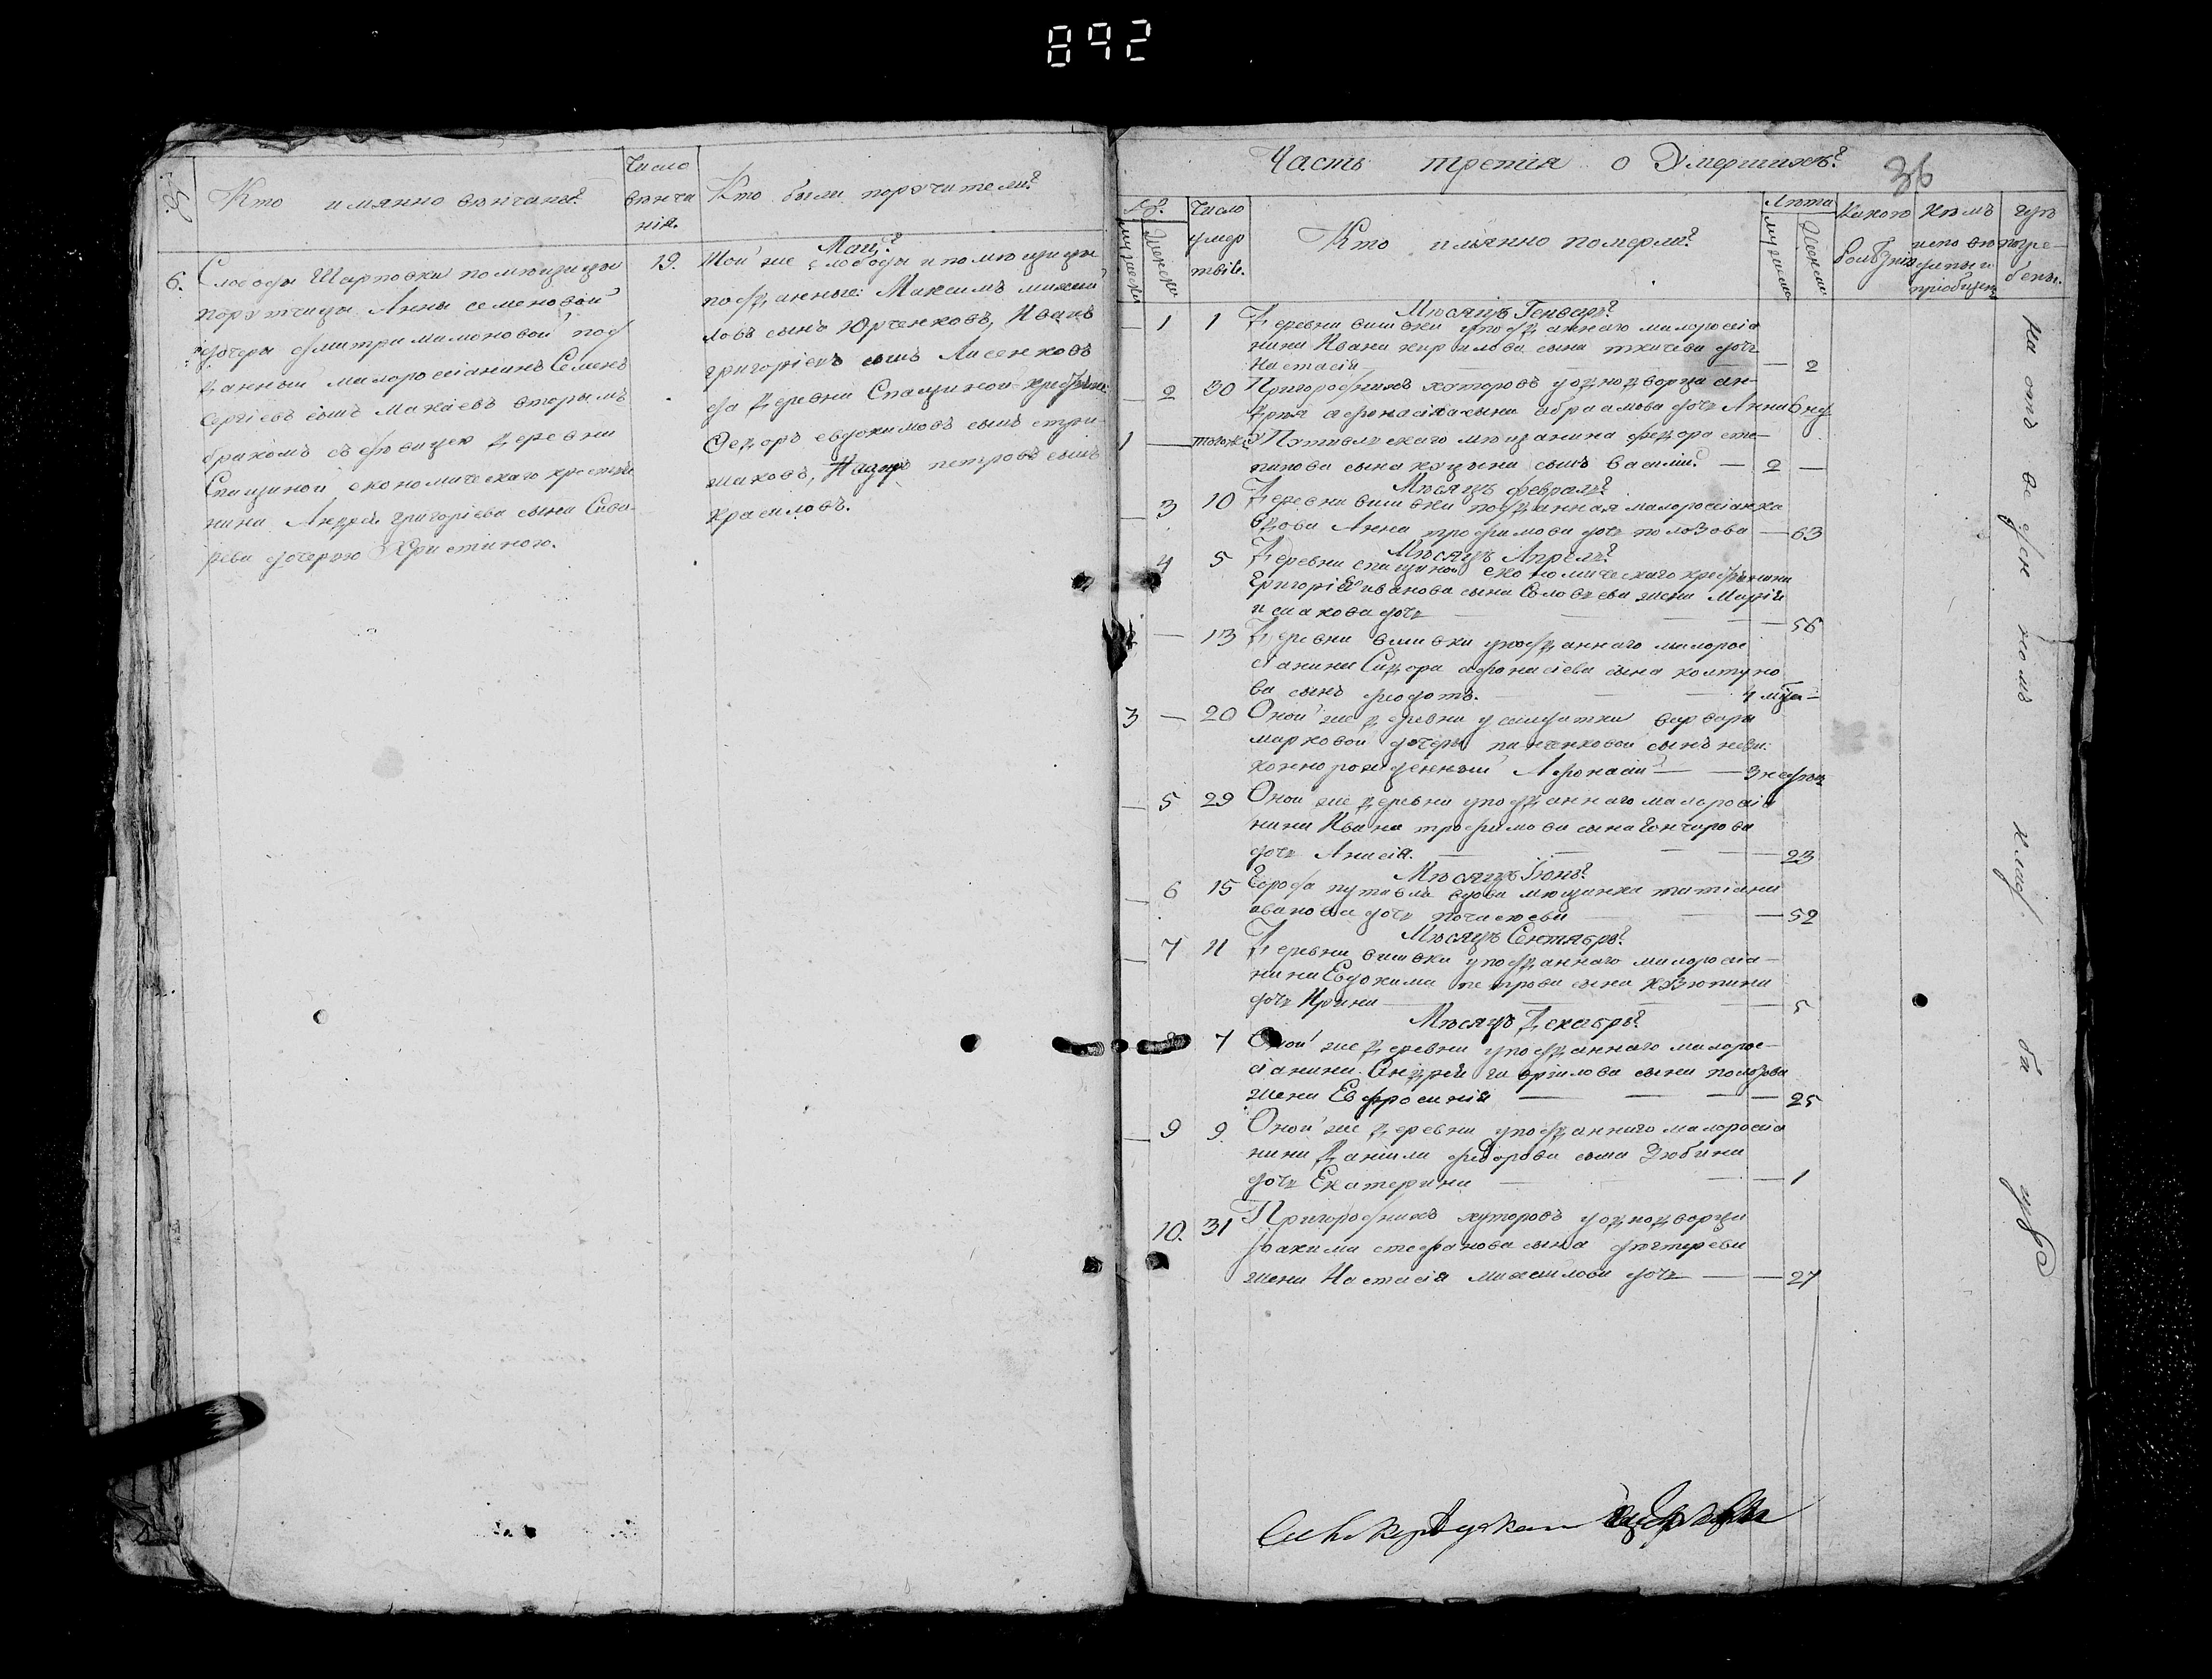 892
№.
Кто имянно венчаны?
Число
венча
нія.
Кто были поручители?
Маія
6. Слободы Шарповки помещицы
порутчицы Анны семеновой
дочери дмитримамоновой под
данный малоросіанинъ Семенъ
сергіевъ сынъ Макаевъ вторымъ
бракомъ съ девицею деревни
Спащиной економическаго крестья
нина Андрея григоріева сына
дочерью Христиною.
19.
Той же слободы и помещицы
подданные: Максимъ михай
ловъ сынъ Юрченковъ, Иванъ
григоріевъ сынъ Лисенковъ
да деревни Спащиной крестьяне
Федоръ евдокимовъ сынъ стри
жаковъ, Назаръ петровъ сынъ
красиловъ.
Часть третія о Умершихъ?
36
№.
мужеска
женска
Число
умер
твія.
Кто имянно померли?
Лета
мужеска
женска
Какою
болезнію
Кемъ
исповеданы и
пріобщены
где
погре
бены.
Месяцъ Генварь
1 1 Деревни вишевки у подданнаго малоросіа
нина Ивана кирилова сына ткачева дочь
Настасія — 2
2 30 Пригородныхъ хуторовъ у однодворца ан
дрея афонасіева сына абраамова дочь Анна 6 нед
1 — тогожъ Путивльскаго мещанина федора сте
панова сына сынъ василій — 2 —
Месяцъ февраль
3 10 Деревни вишевки подданная малоросіанка
вдова Анна трофимова дочь полозова — 63
Месяцъ Апрель
4 5 Деревни спащиной економическаго крестьянина
Григорія иванова сына Соловьева жена Марія
исакова дочь — 56
2 — 13 Деревни вишевки у подданнаго малорос
сіанина Сидора афонасіева сына колтуно
ва сынъ федотъ. — 1 меся —
3 — 20 Оной же деревни у солдатки варвары
марковой дочери панченковой сынъ неза
коннорожденный Афонасій — 3 недель
5 29 Оной же деревни у подданнаго малоросіа
нина Ивана трофимова сына Гончарова
дочь Анасія. — 23
Месяцъ Іюнь
6 15 Города путивля вдова мещанка татіана
иванова дочь — 52
Месяцъ Сентябрь
7 11 Деревни вишевки у подданнаго малоросіа
нина Евдокима петрова сына
дочь Ирина — 5
Месяцъ Декабрь
7 Оной же деревни у подданнаго малорос
сіанина Андрея гаврилова сына полозова
жена Евфросинія — 25
9 9. Оной же деревни у подданнаго малоросіа
нина Данила федорова сына Зюбина
дочь Екатерина — 1
10. 31 Пригородныхъ хуторовъ у однодворца
Іоакима стефанова сына дегтерева
жена Настасія михайлова дочь — 27
На отъ ве ден